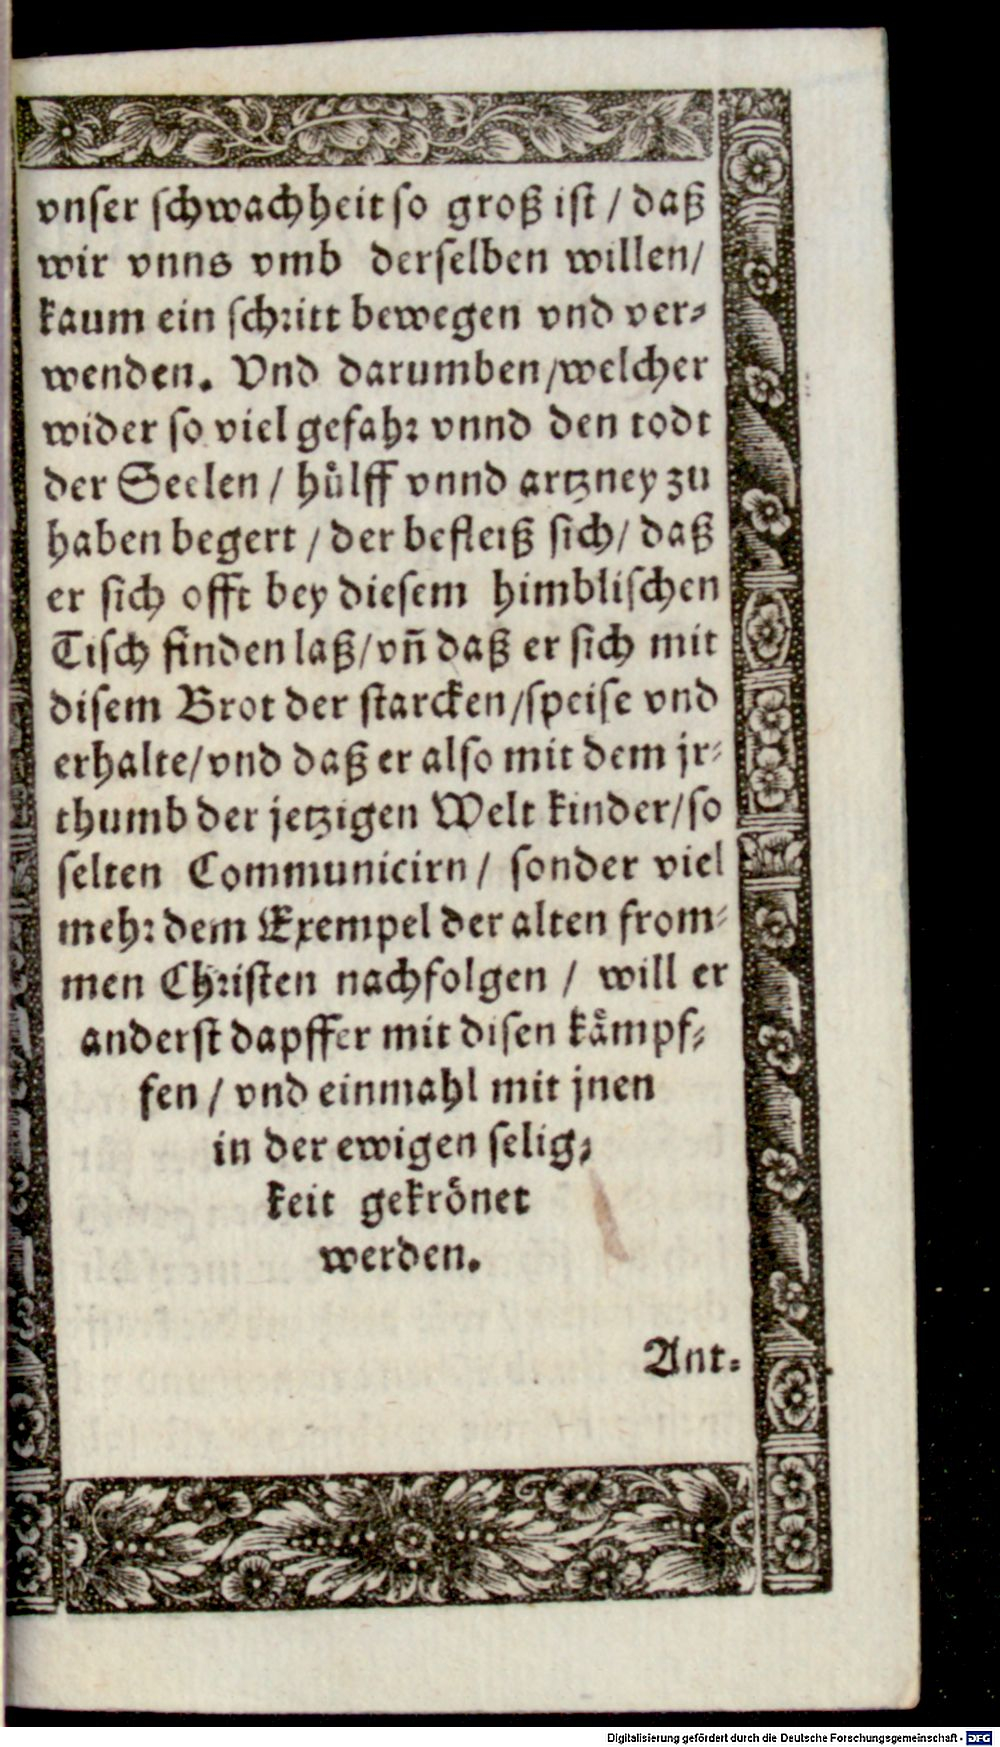 vnser schwachheit so groß ist / daß
wir vnns vmb derselben willen/
kaum ein schritt bewegen vnd ver-
wenden. Vnd darumben/welcher
wider so viel gefahr vnnd den todt
der Seelen / hůlff vnnd artzney zu
haben begert / der befleiß sich/ daß
er sich offt bey diesem himblischen
Tisch finden laß/vñ daß er sich mit
disem Brot der starcken/speise vnd
erhalte/vnd daß er also mit dem jr-
thumb der jetzigen Welt kinder/so
selten Communicirn / sonder viel
mehr dem Exempel der alten from-
men Christen nachfolgen / will er
anderst dapffer mit disen kåmpf-
fen / vnd einmahl mit jnen
in der ewigen selig-
keit gekrönet
werden.
Ant-
Digitalisierung gefördert durch die Deutsche Forschungsgemeinschaft - DFG